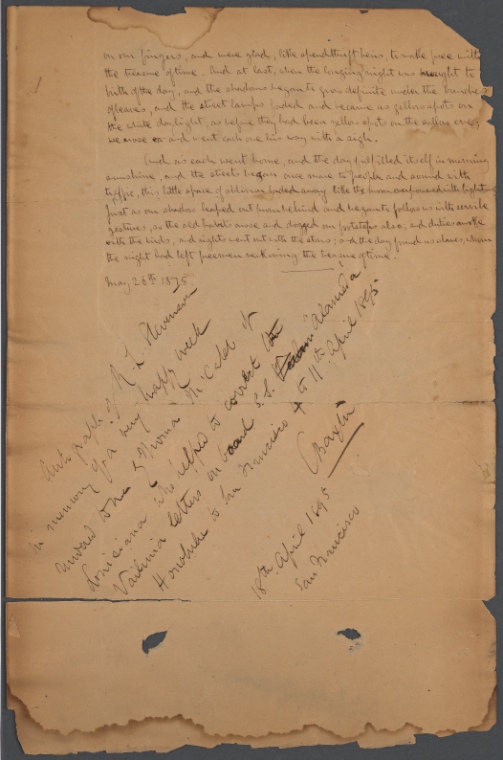 on our fingers, and were glad, like spendthrift heirs, to make free with
the treasure of time. And at last, when the lingering night was brought to
birth of the day, and the shadows began to grow definite under the branches
of leaves, and the street lamps faded and became as yellow spots on
the white daylight, as before they had been yellow spots on the
we rose and went each one his way with a sigh.
And as each went home, and the day fulfilled itself in morning
sunshine, and the streets began once more to people and sound with
traffic, this little space of oblivion faded away like the moon
Just as our shadow leaped out from behind and began to follow us with servile
gestures, so the old habits arose and dogged our footsteps also, and duties awoke
with the birds, and nights went out with the stars; and the day found us slaves, whom
the night had left freemen reckoning the treasure of time.
May 26th 1875.
Autograph of R L Stevenson
in memory of a very happy week
answered to me by Norma McCaleb of
Louisiana who helped to correct the
Vailima letters on board S.S. Alameda
Honolulu to San Francisco 4 to 11th April 1895
C Baxter
18th April 1895
San Francisco